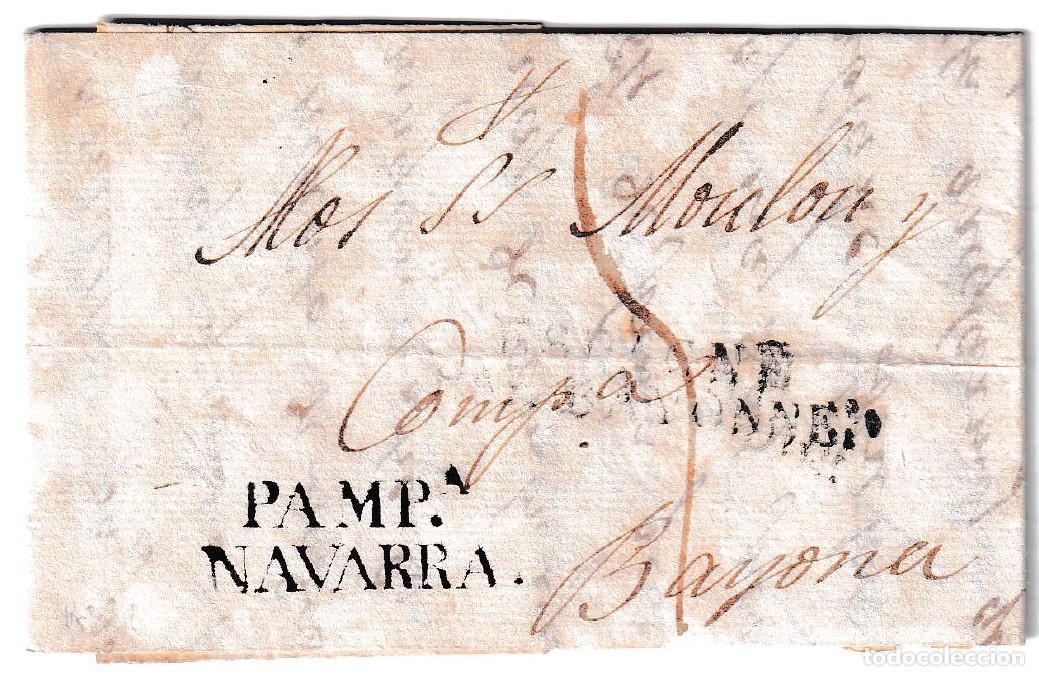 Mos SS Moulon y
Comp.a
ESPAGNE
BAYONNE
PAMP.A
NAVARRA.
Bayona
todocoleccion